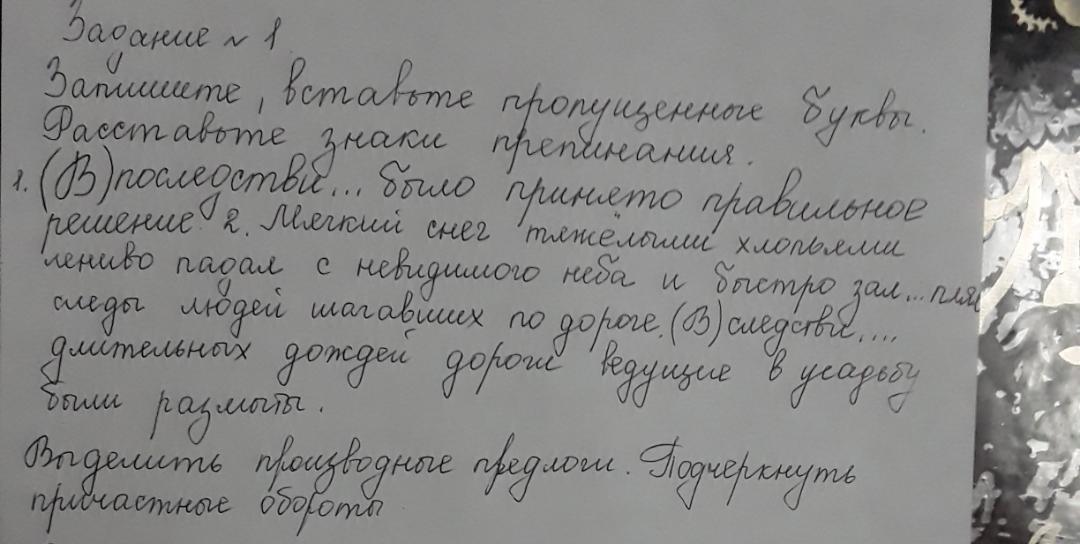 Задание ~ 1
Запишите, вставьте пропущенные буквы.
Расставьте знаки препинания.
1. (В)последстви... было принято правильное
решение. 2. Мягкий снег тяжёлыми хлопьями
лениво падал с невидимого неба и быстро зал...плял
следы людей шагавших по дороге. (В)следстви....
длительных дождей дороги ведущие в усадьбу
были размыты.
Выделить производные предлоги. Подчеркнуть
причастные обороты